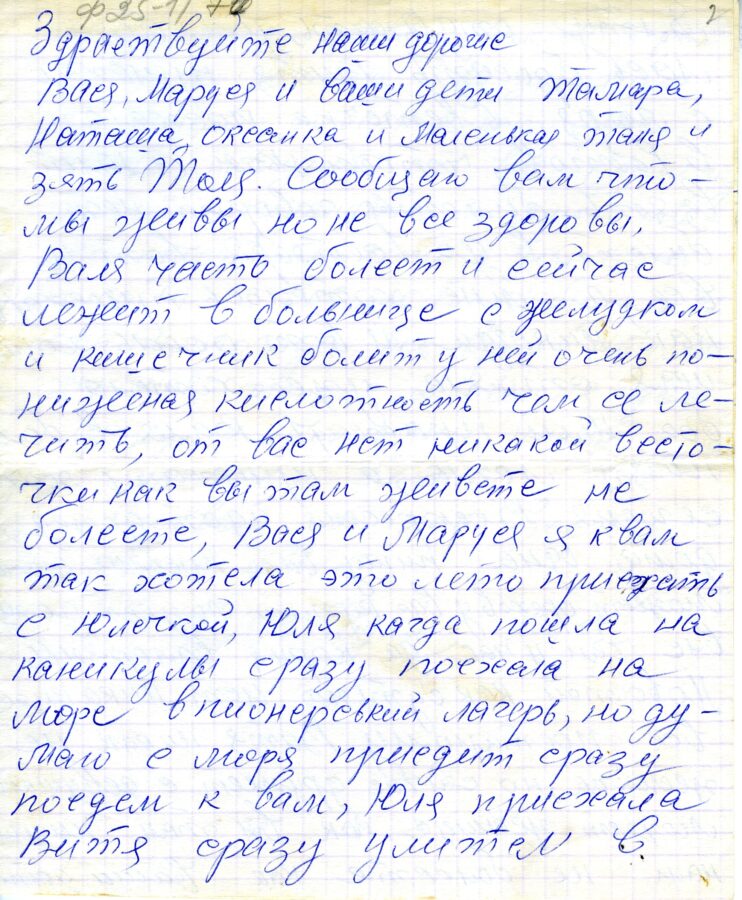 ф25-1/74
2
Здраствуйте наши дорогие
Вася, Маруся и ваши дети Тамара,
Наташа, оксанка и Маленькая таня и
зять Толя. Сообщаю вам что-
мы живы но не все здоровы.
Валя часто болеет и сейчас
лежит в больнице с желудком
и кишечник болит у ней очень по-
нижейная кислотность чем ее ле-
чить, от вас нет никакой весто-
чки как вы там живете не
болеете, Вася и Маруся я к вам
так хотела это лето приехать
с Юлечкой, Юля кагда пошла на
каникулы сразу поехала на
море в пионерьвкий лагерь, но ду-
маю с моря приедит сразу
поедем к вам, Юля приехала
Витя сразу улител в